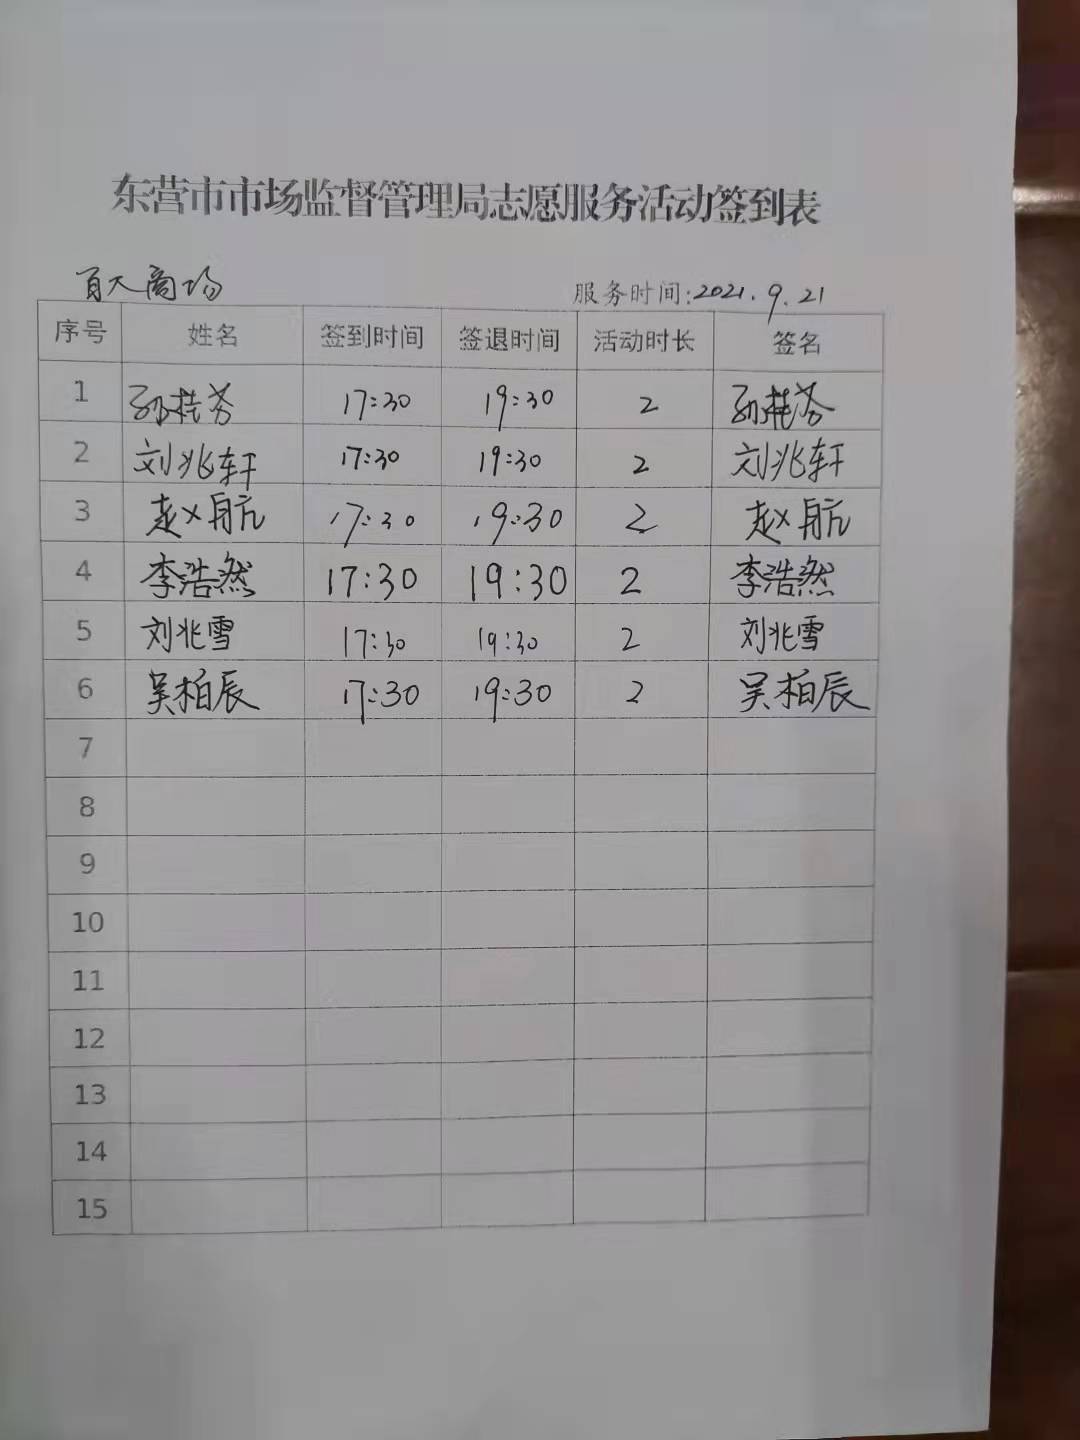 东营市市场监督管理局志愿服务活动签到表
百大商场 服务时间:2021.9.21
序号 姓名 签到时间 签退时间 活动时长 签名
1 孙桂芬 17:30 19:30 2 孙桂芬
2 刘兆轩 17:30 19:30 2 刘兆轩
3 赵航 17:30 19:30 2 赵航
4 李浩然 17:30 19:30 2 李浩然
5 刘兆雪 17:30 19:30 2 刘兆雪
6 吴柏辰 17:30 19:30 2 吴柏辰
7
8
9
10
11
12
13
14
15